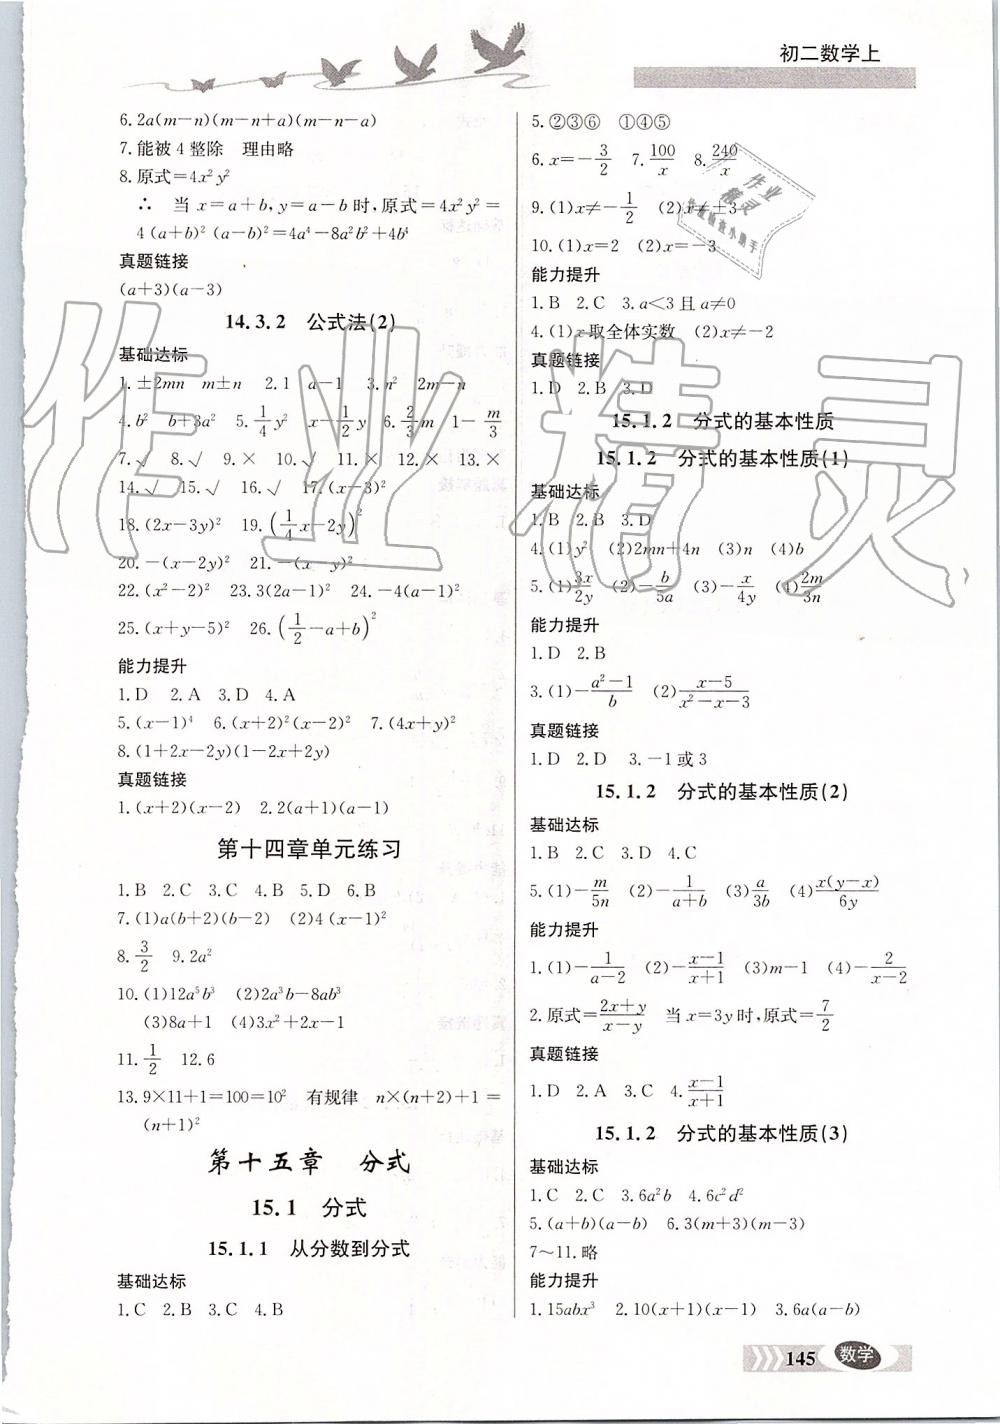 初二数学上
6.2a(m-n)(m-n+a)(m-n-a)
7.能被4整除 理由略
8.原式=4x²y²
∴ 当x=a+b,y=a-b时,原式=4x²y²=
4(a+b)²(a-b)²=4a⁴-8a²b²+4b⁴
真题链接
(a+3)(a-3)
14.3.2 公式法(2)
基础达标
1.±2mn m±n 2.1 a-1 3.n² 2m-n
4.b² b+3a² 5.1/4y² x-1/2y 6.2/3m 1-m/3
7.√ 8.√ 9.× 10.√ 11.× 12.× 13.×
14.√ 15.× 16.√ 17.(x-3)²
18.(2x-3y)² 19.(1/4x-2y)²
20.-(x-2y)² 21.-(x-y)²
22.(x²-2)² 23.3(2a-1)² 24.-4(x-1)²
25.(x+y-5)² 26.(1/2-a+b)²
能力提升
1.D 2.A 3.D 4.A
5.(x-1)⁴ 6.(x+2)²(x-2)² 7.(4x+y)²
8.(1+2x-2y)(1-2x+2y)
真题链接
1.(x+2)(x-2) 2.2(a+1)(a-1)
第十四章单元练习
1.B 2.C 3.C 4.B 5.D 6.B
7.(1)a(b+2)(b-2) (2)4(x-1)²
8.3/2 9.2a²
10.(1)12a⁵b³ (2)2a³b-8ab³
(3)8a+1 (4)3x²+2x+1
11.1/2 12.6
13.9×11+1=100=10² 有规律 n×(n+2)+1=
(n+1)²
第十五章 分式
15.1 分式
15.1.1 从分数到分式
基础达标
1.C 2.B 3.C 4.B
5.②③⑥ ①④⑤
6.x=-3/2 7.100/x 8.240/x
9.(1)x≠-1/2 (2)x≠±3
10.(1)x=2 (2)x=-3
能力提升
1.B 2.C 3.a<3且a≠0
4.(1)x取全体实数 (2)x≠-2
真题链接
1.D 2.B 3.D
15.1.2 分式的基本性质
15.1.2 分式的基本性质(1)
基础达标
1.B 2.B 3.D
4.(1)y² (2)2mn+4n (3)n (4)b
5.(1)3x/2y (2)-b/5a (3)-x/4y (4)2m/3n
能力提升
1.D 2.B
3.(1)-(a²-1)/b (2)(x-5)/(x²-x-3)
真题链接
1.D 2.D 3.-1或3
15.1.2 分式的基本性质(2)
基础达标
1.B 2.C 3.D 4.C
5.(1)-m/5n (2)-1/(a+b) (3)a/3b (4)x(y-x)/6y
能力提升
1.(1)-1/(a-2) (2)-(x-1)/(x+1) (3)m-1 (4)-2/(x-2)
2.原式=(2x+y)/(x-y) 当x=3y时,原式=7/2
真题链接
1.D 2.A 3.C 4.(x-1)/(x+1)
15.1.2 分式的基本性质(3)
基础达标
1.C 2.C 3.6a²b 4.6c²d²
5.(a+b)(a-b) 6.3(m+3)(m-3)
7~11.略
能力提升
1.15abx³ 2.10(x+1)(x-1) 3.6a(a-b)
145 数学
作业精灵